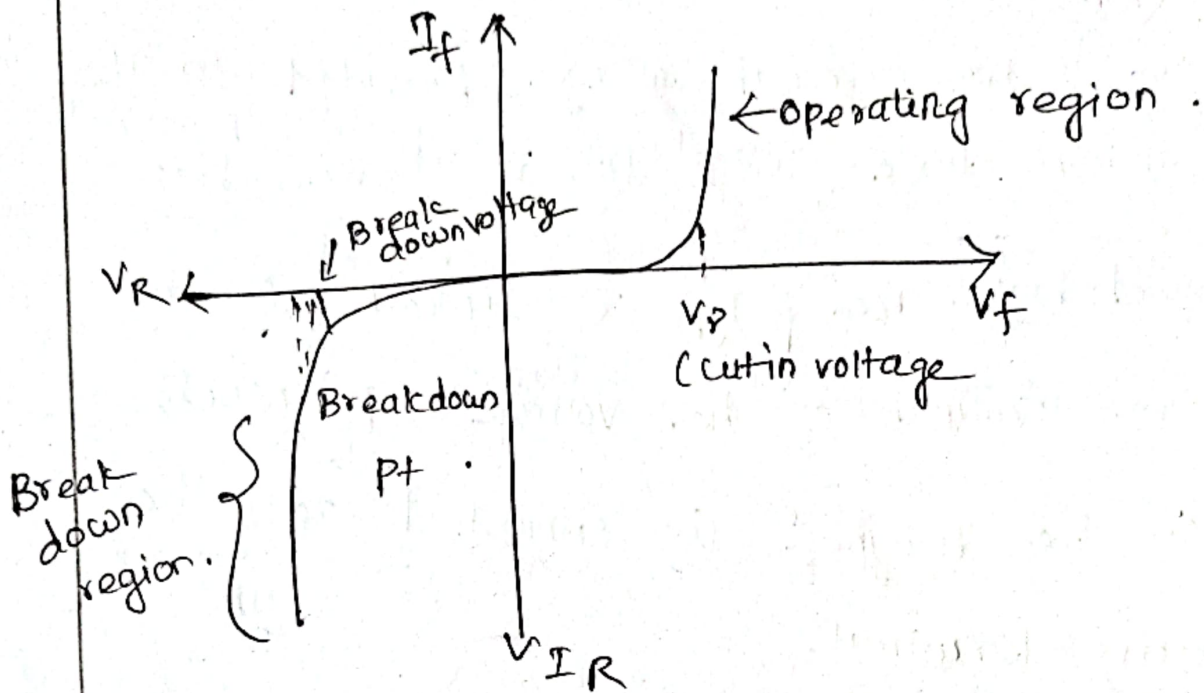 If
←operating region.
Break
down voltage
VR
Vf
Vγ
(cutin voltage
Breakdown
pt.
Break
down
region.
IR